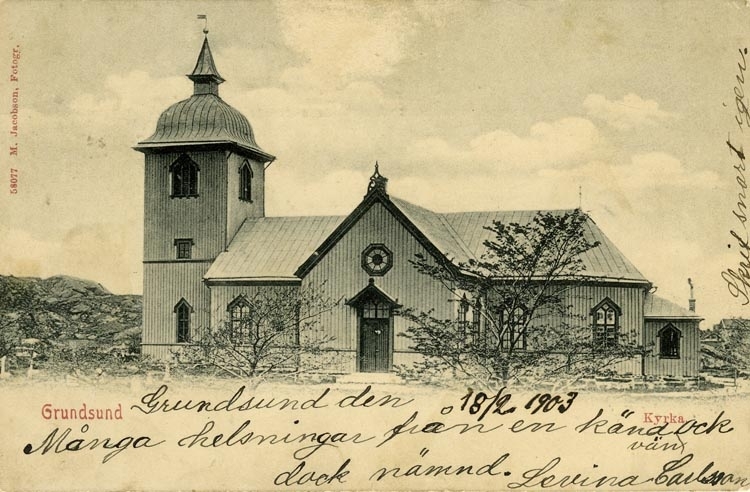 58077 M. Jacobson, Fotogr.
Grundsund
Kyrka
Grundsund den 18/2 1903
Många helsningar från en känd ock
vän
dock nämnd. Levina Carlsson
Skrif snart igen.